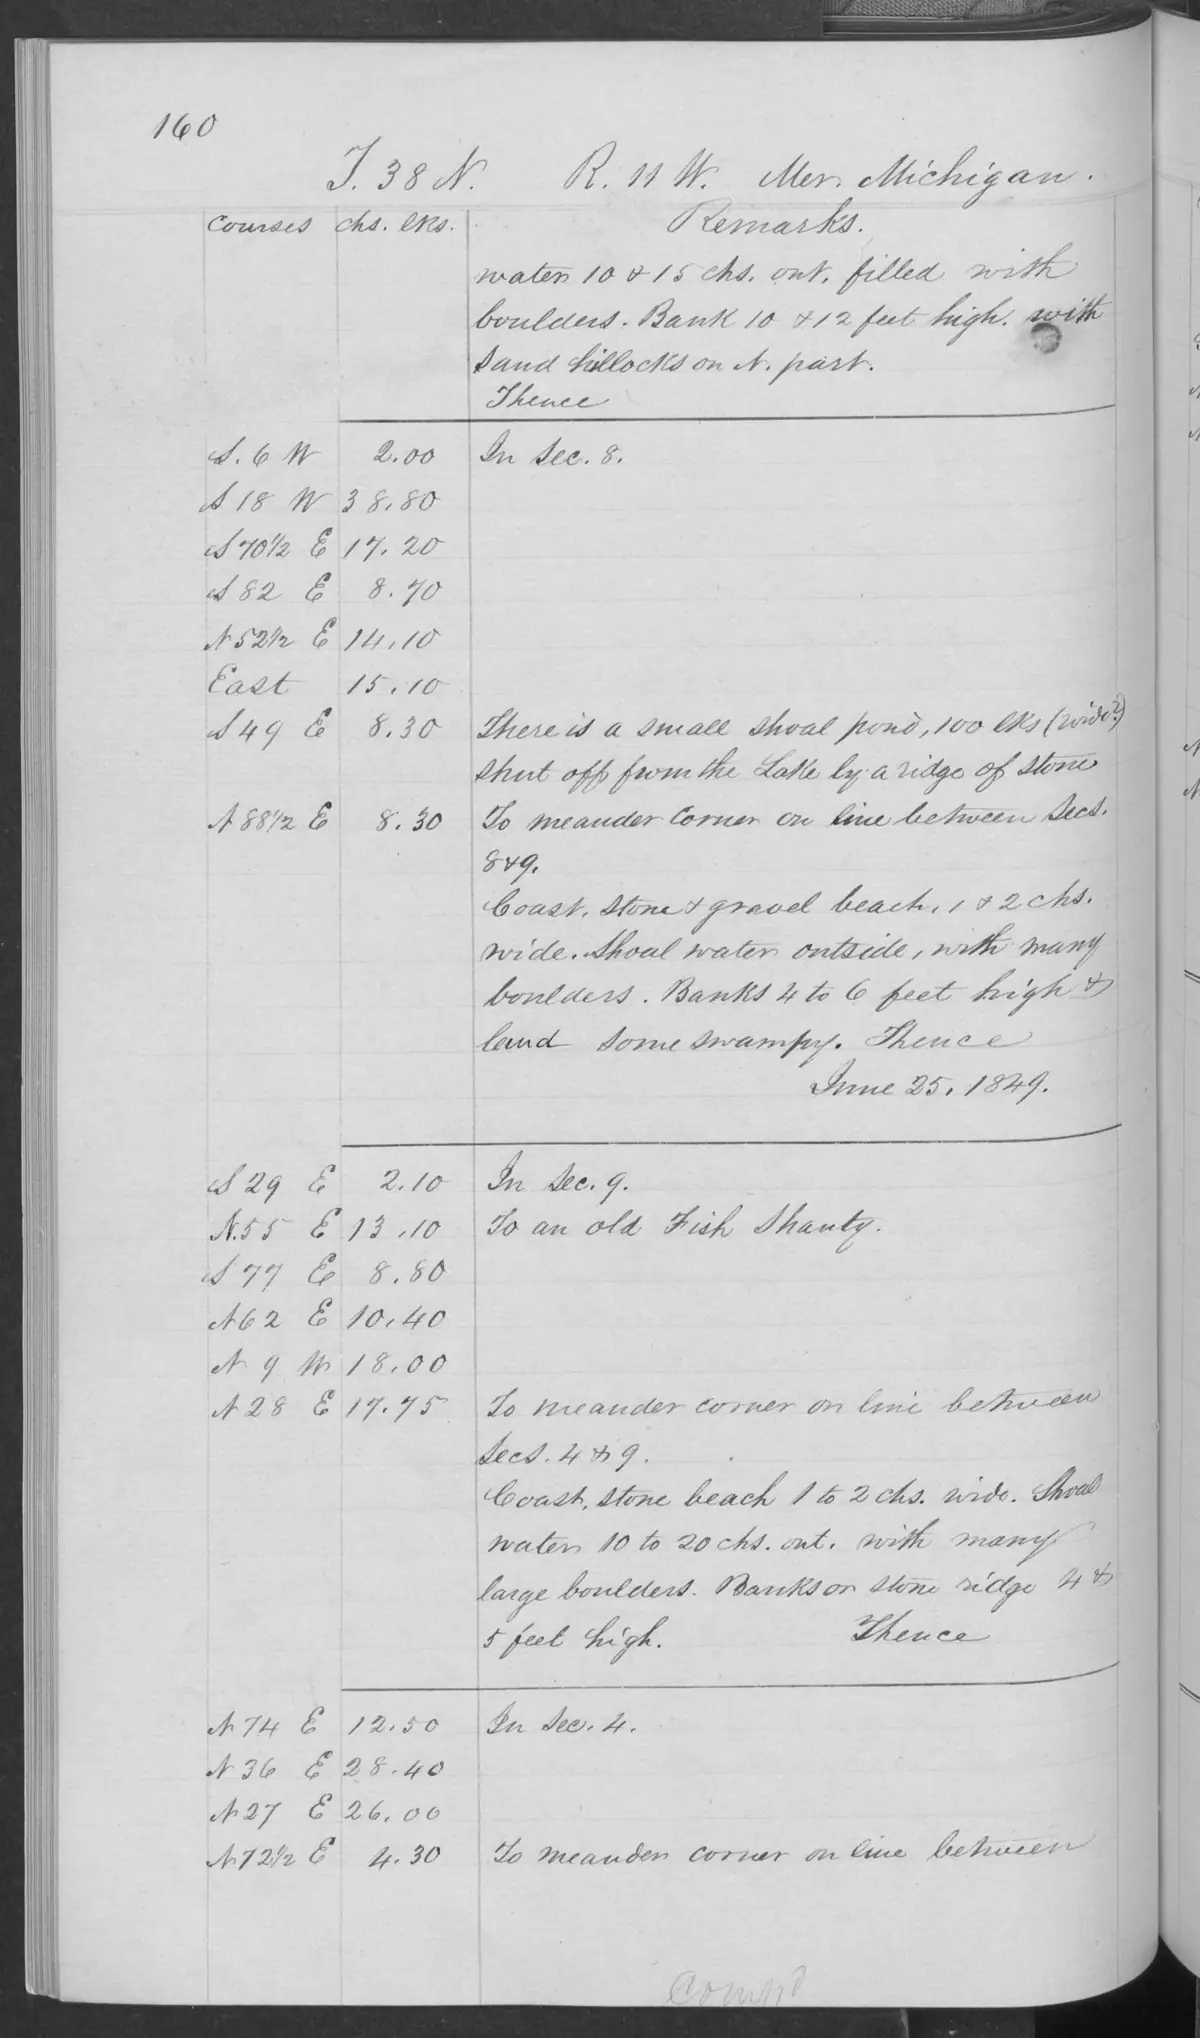 160
T. 38 N. R. 11 W. Mer. Michigan.
Courses chs. lks. Remarks.
water 10 & 15 chs. out, filled with
boulders. Bank 10 & 12 feet high. with
sand hillocks on N. part.
Thence
S. 6 W 2.00 In Sec. 8.
S 18 W 38.80
S 70 1/2 E 17.20
S 82 E 8.70
N 52 1/2 E 14.10
East 15.10
S 49 E 8.30 There is a small shoal pond, 100 lks (wide?)
shut off from the Lake by a ridge of stone
N 88 1/2 E 8.30 To meander corner on line between Secs.
8 & 9.
Coast, stone & gravel beach, 1 & 2 chs.
wide. Shoal water outside, with many
boulders. Banks 4 to 6 feet high &
land some swampy. Thence
June 25, 1849.
S 29 E 2.10 In Sec. 9.
N. 55 E 13.10 To an old Fish Shanty.
S 77 E 8.80
N 62 E 10.40
N 9 W 18.00
N 28 E 17.75 To meander corner on line between
Secs. 4 & 9.
Coast, stone beach 1 to 2 chs. wide. Shoal
water 10 to 20 chs. out. with many
large boulders. Banks or stone ridge 4 &
5 feet high. Thence
N 74 E 12.50 In Sec. 4.
N 36 E 28.40
N 27 E 26.00
N 72 1/2 E 4.30 To meander corner on line between
Comp'd